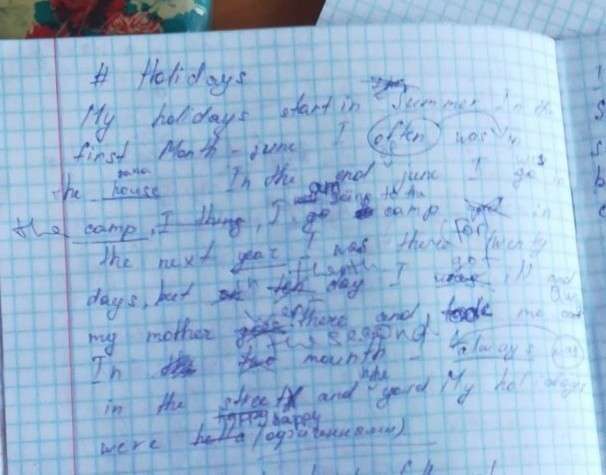 # Holidays
My holidays start in Summer in the
first Month - june I often was in
the house In the end june I was go in
the camp, I thing, I am going to the camp in
the next year I was there for twenty
days, but on tenth day I got ill and
my mother there and took me out
In the second mounth I always was
in the street and the yard My holidays
were happy